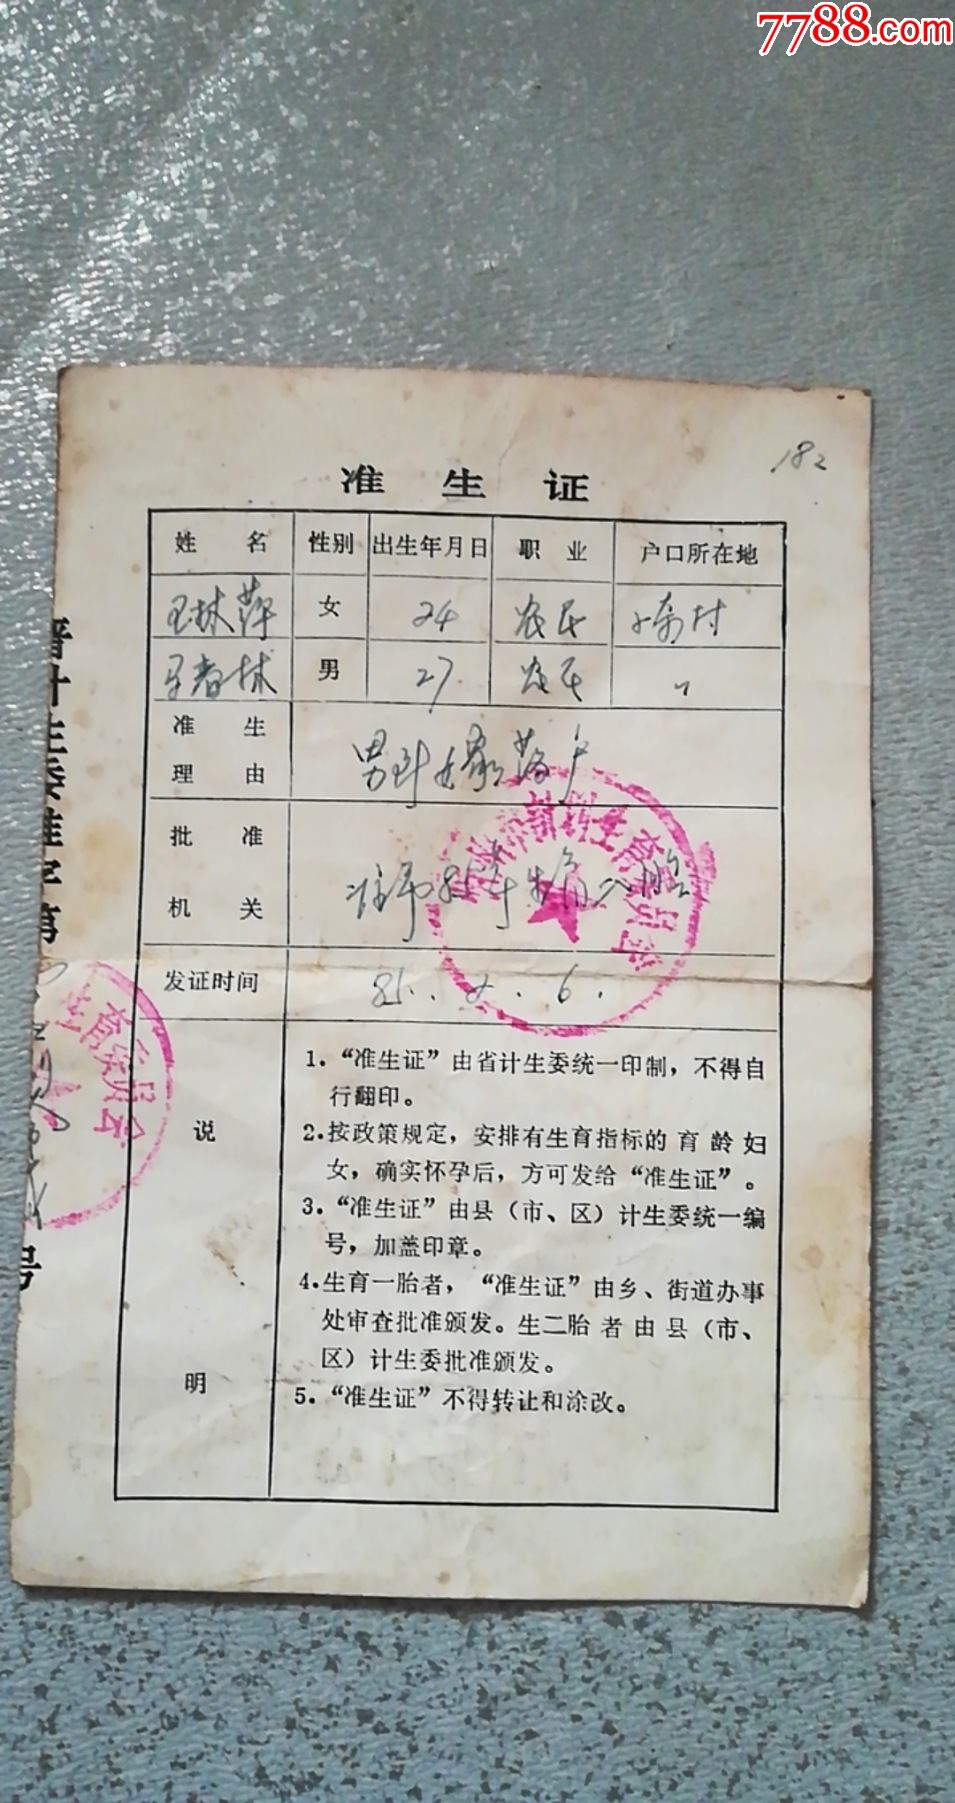 7788.com
182
准生证
姓名 性别 出生年月日 职业 户口所在地
王林萍 女 24 农民 村
王春林 男 27 农民 〃
准生理由 男到女家落户
批准机关
发证时间 85. 6.
说明
1.“准生证”由省计生委统一印制，不得自
行翻印。
2.按政策规定，安排有生育指标的育龄妇
女，确实怀孕后，方可发给“准生证”。
3.“准生证”由县（市、区）计生委统一编
号，加盖印章。
4.生育一胎者，“准生证”由乡、街道办事
处审查批准颁发。生二胎者由县（市、
区）计生委批准颁发。
5.“准生证”不得转让和涂改。
生育委员会
育委员会
号